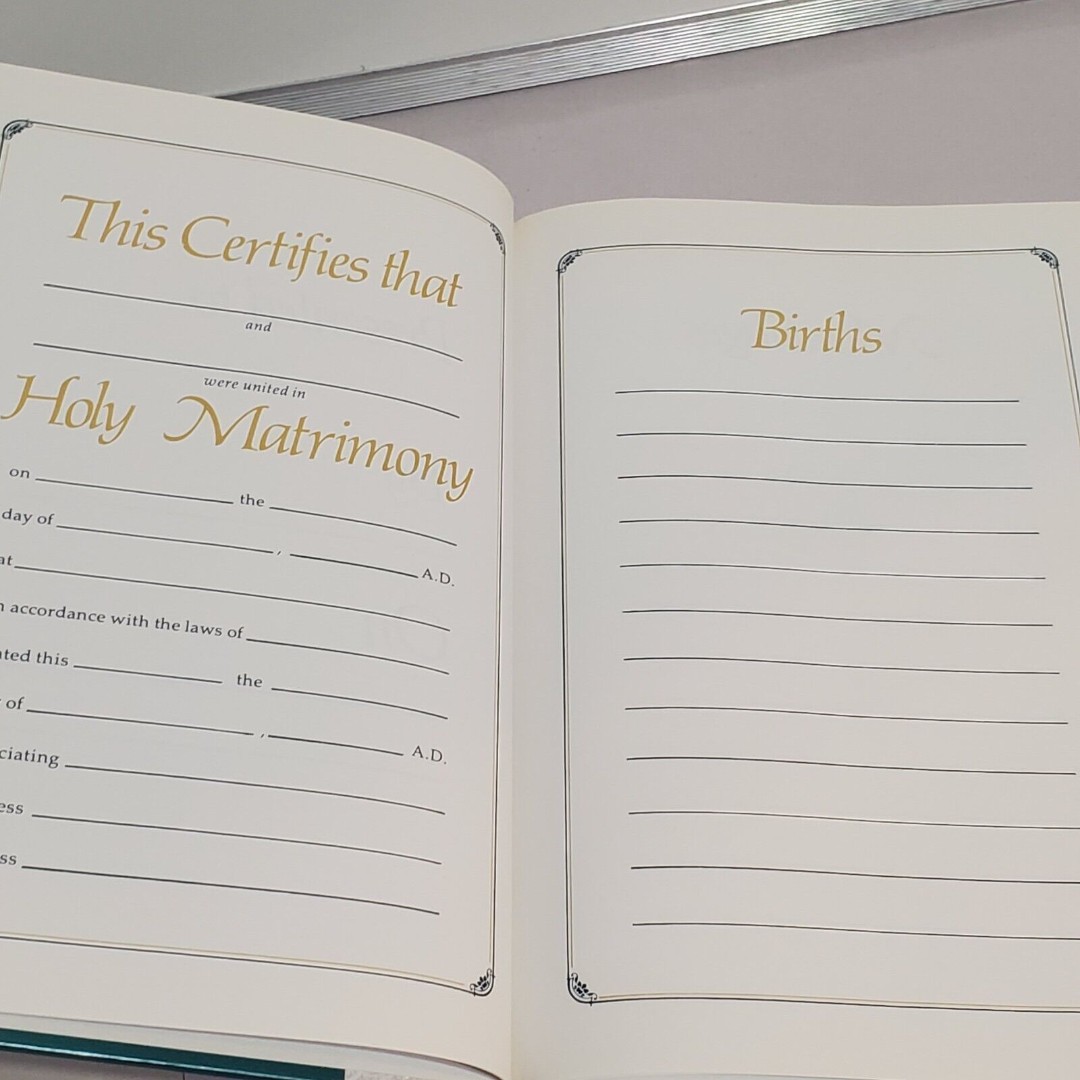 This Certifies that
and
were united in
Holy Matrimony
on the
day of , A.D.
at
accordance with the laws of
this the
of , A.D.
Births